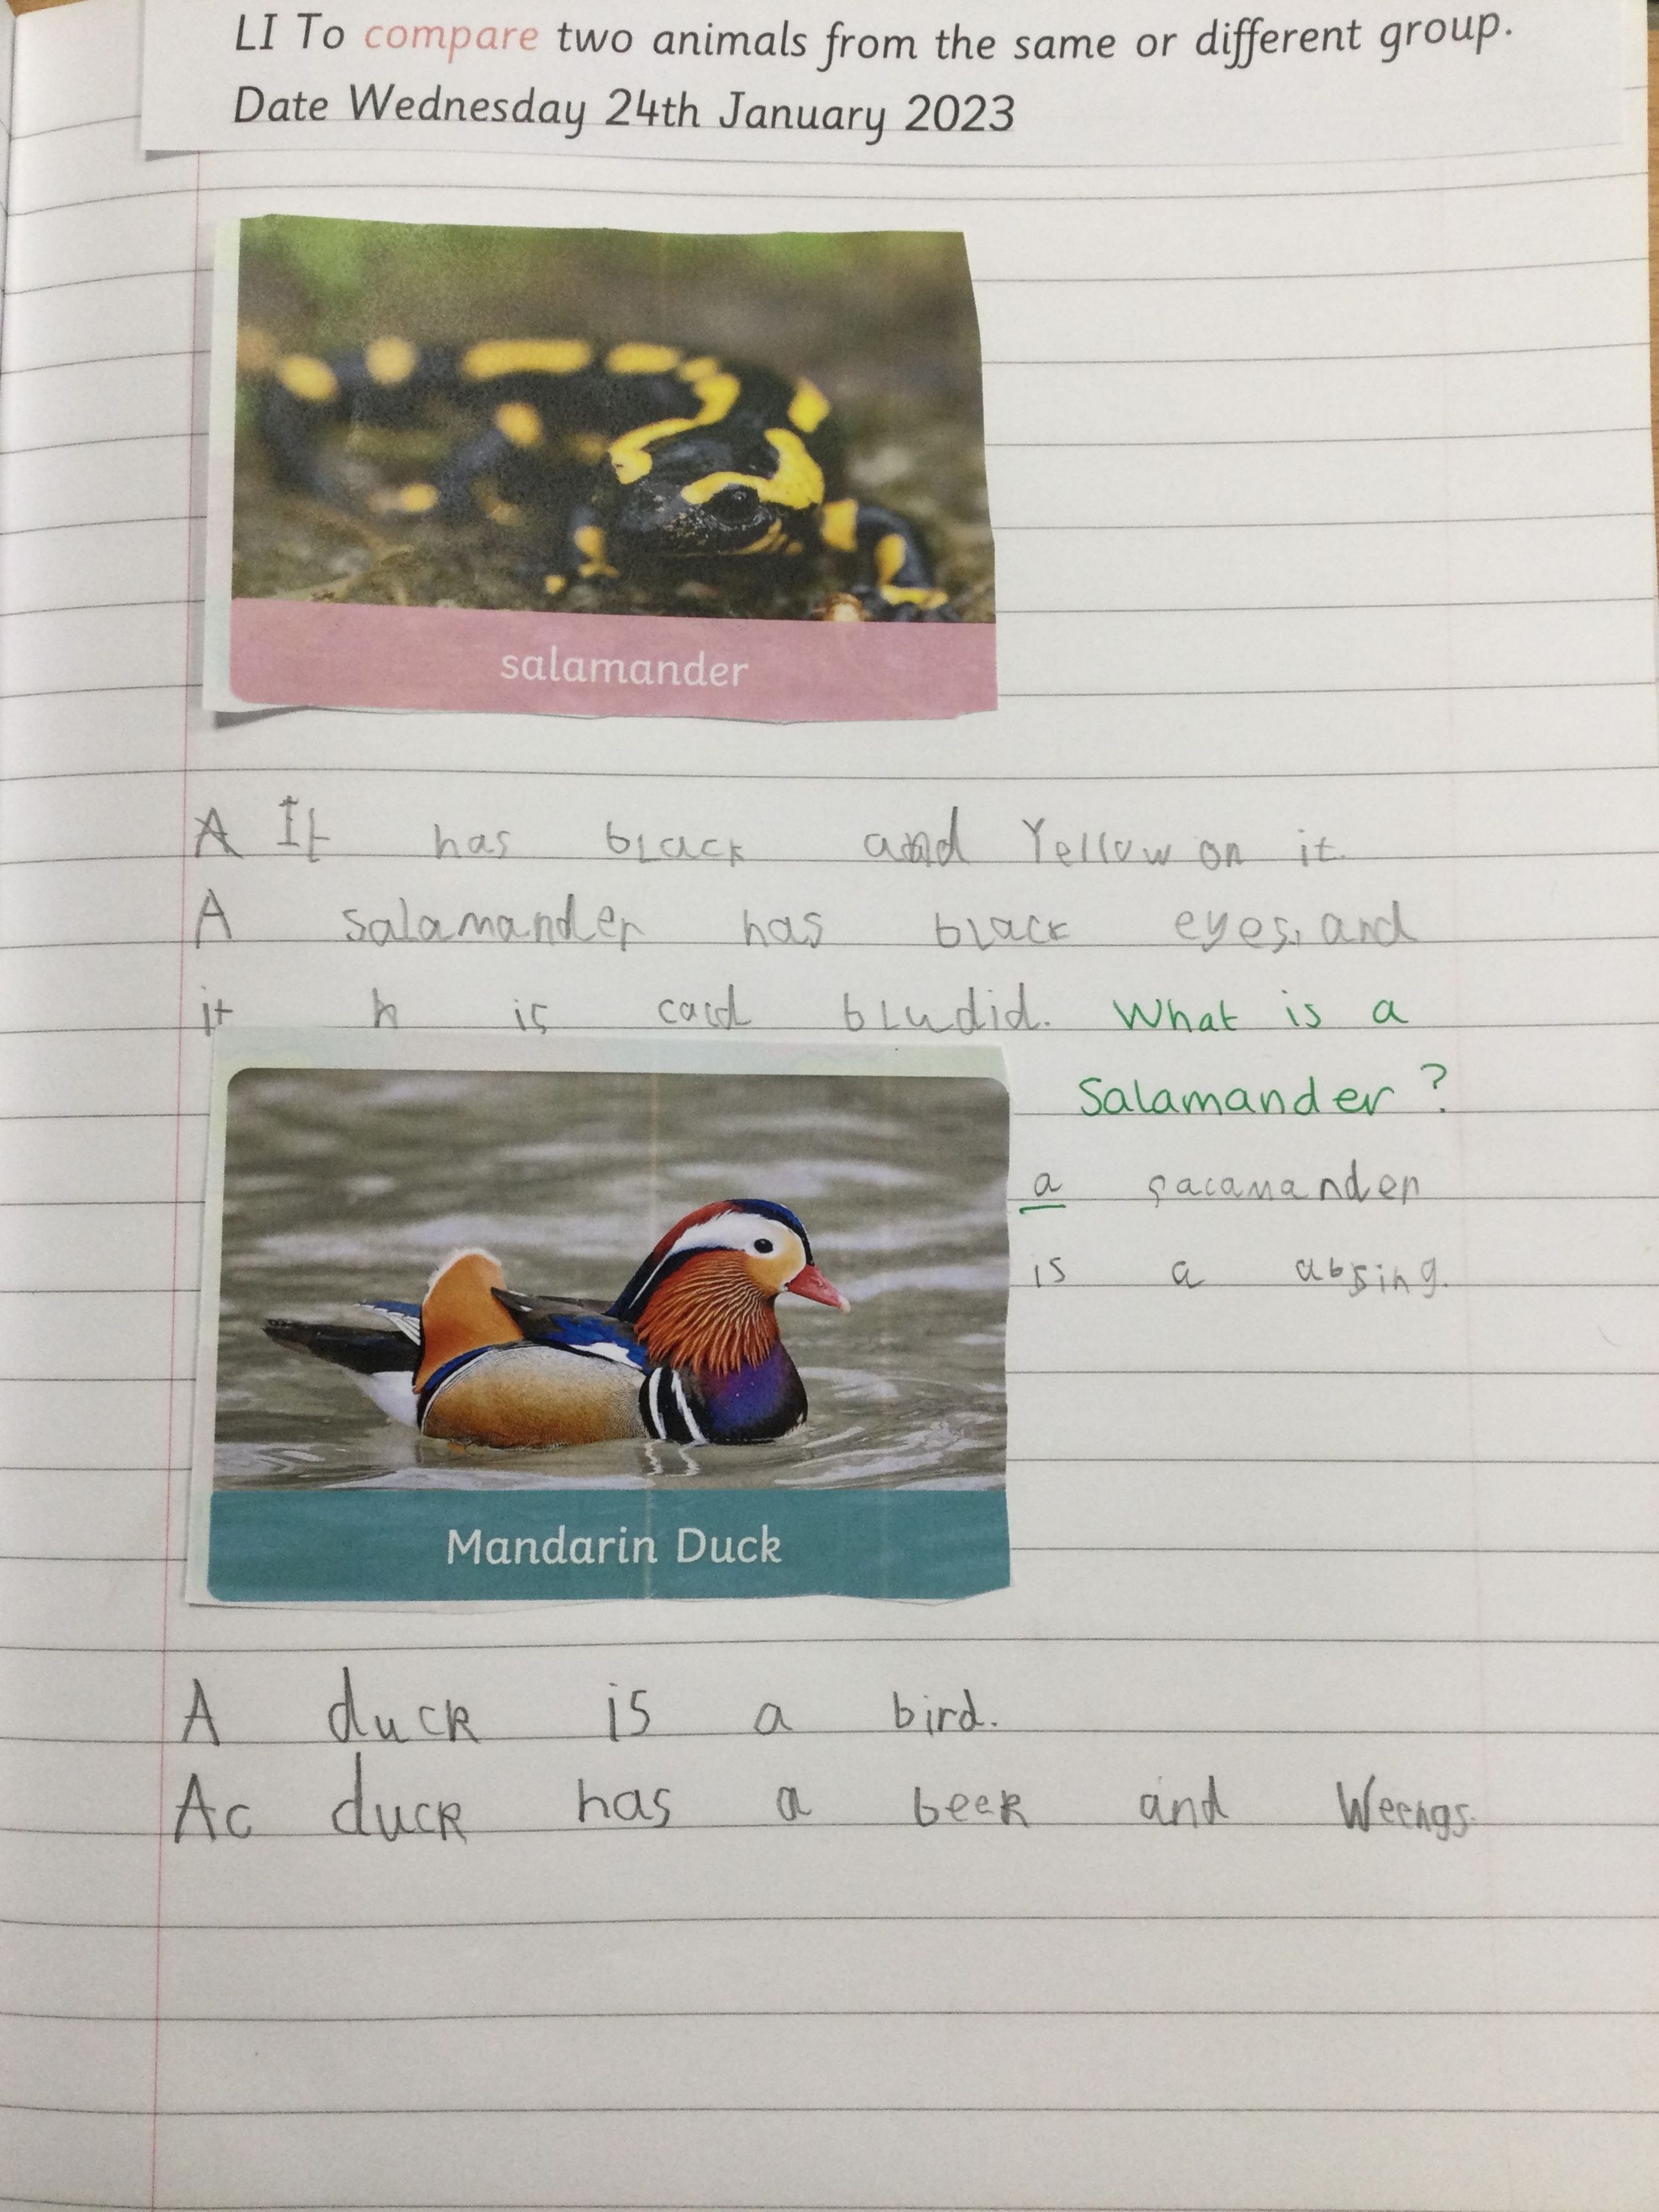 LI To compare two animals from the same or different group.
Date Wednesday 24th January 2023
salamander
A It has black and Yellow on it.
A salamander has black eyes, and
it h is cauld bludid. What is a
Salamander?
a sacamander
is a absing.
Mandarin Duck
A duck is a bird.
Ac duck has a beek and Weengs.